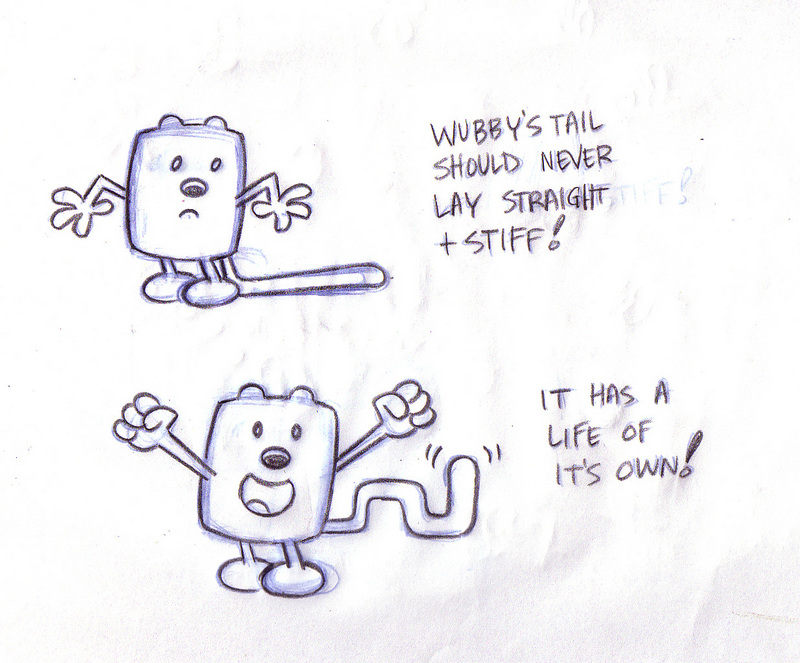 WUBBY'S TAIL
SHOULD NEVER
LAY STRAIGHT STIFF!
+ STIFF!
IT HAS A
LIFE OF
IT'S OWN!